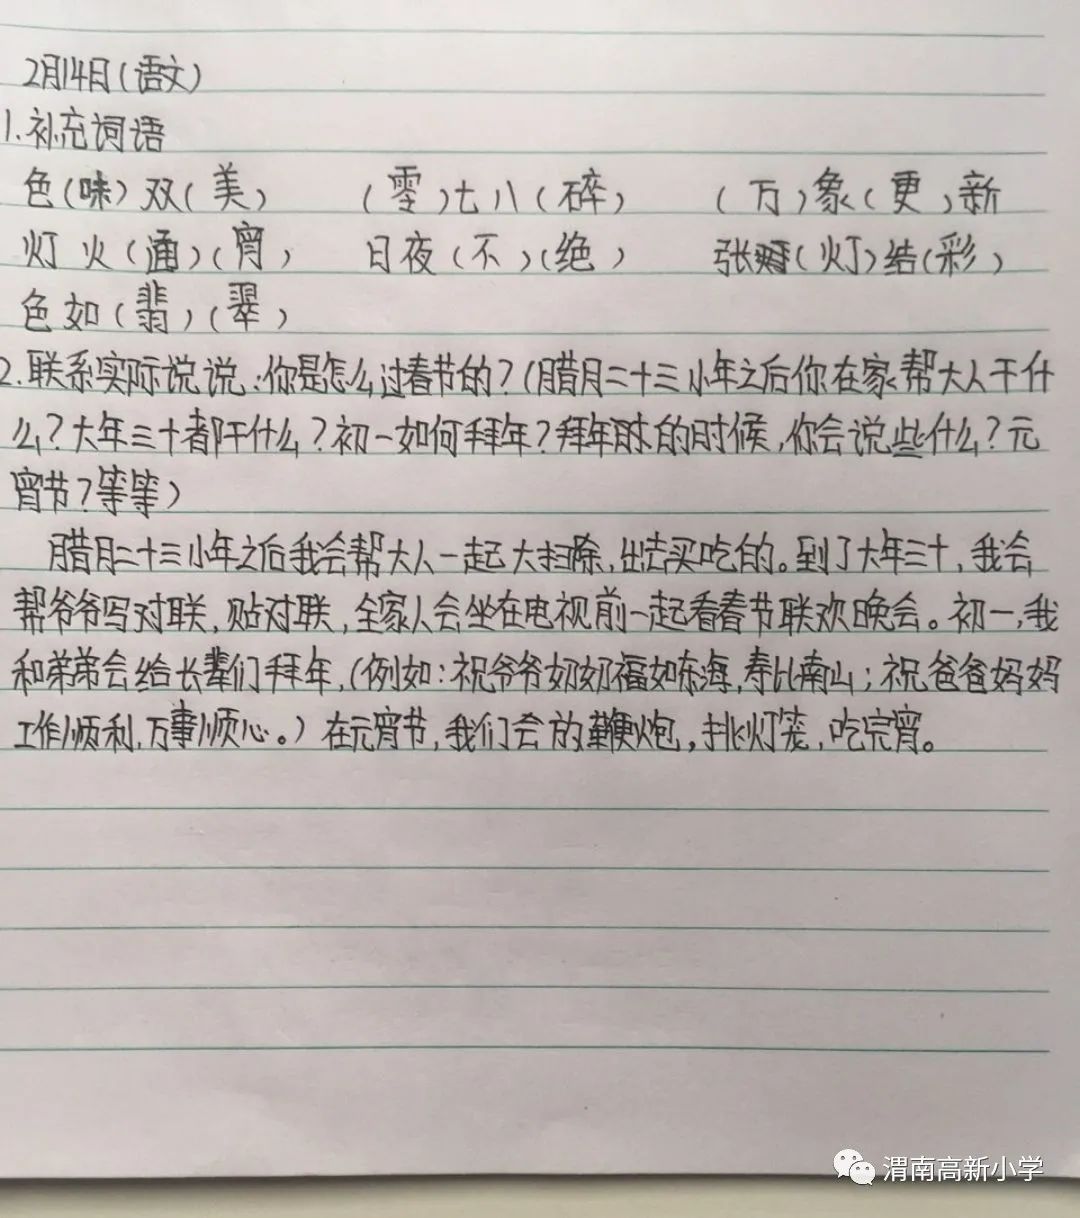 2月14日(语文)
1.补充词语
色(味)双(美) (零)七八(碎) (万)象(更)新
灯火(通)(宵) 日夜(不)(绝) 张(灯)结(彩)
色如(翡)(翠)
2.联系实际说说:你是怎么过春节的?(腊月二十三小年之后你在家帮大人干什
么?大年三十都干什么?初一如何拜年?拜年的时候,你会说些什么?元
宵节?等等)
腊月二十三小年之后我会帮大人一起大扫除,出去买吃的。到了大年三十,我会
帮爷爷写对联,贴对联,全家人会坐在电视前一起看春节联欢晚会。初一,我
和弟弟会给长辈们拜年,(例如:祝爷爷奶奶福如东海,寿比南山;祝爸爸妈妈
工作顺利,万事顺心。)在元宵节,我们会放鞭炮,挑灯笼,吃完宵。
渭南高新小学